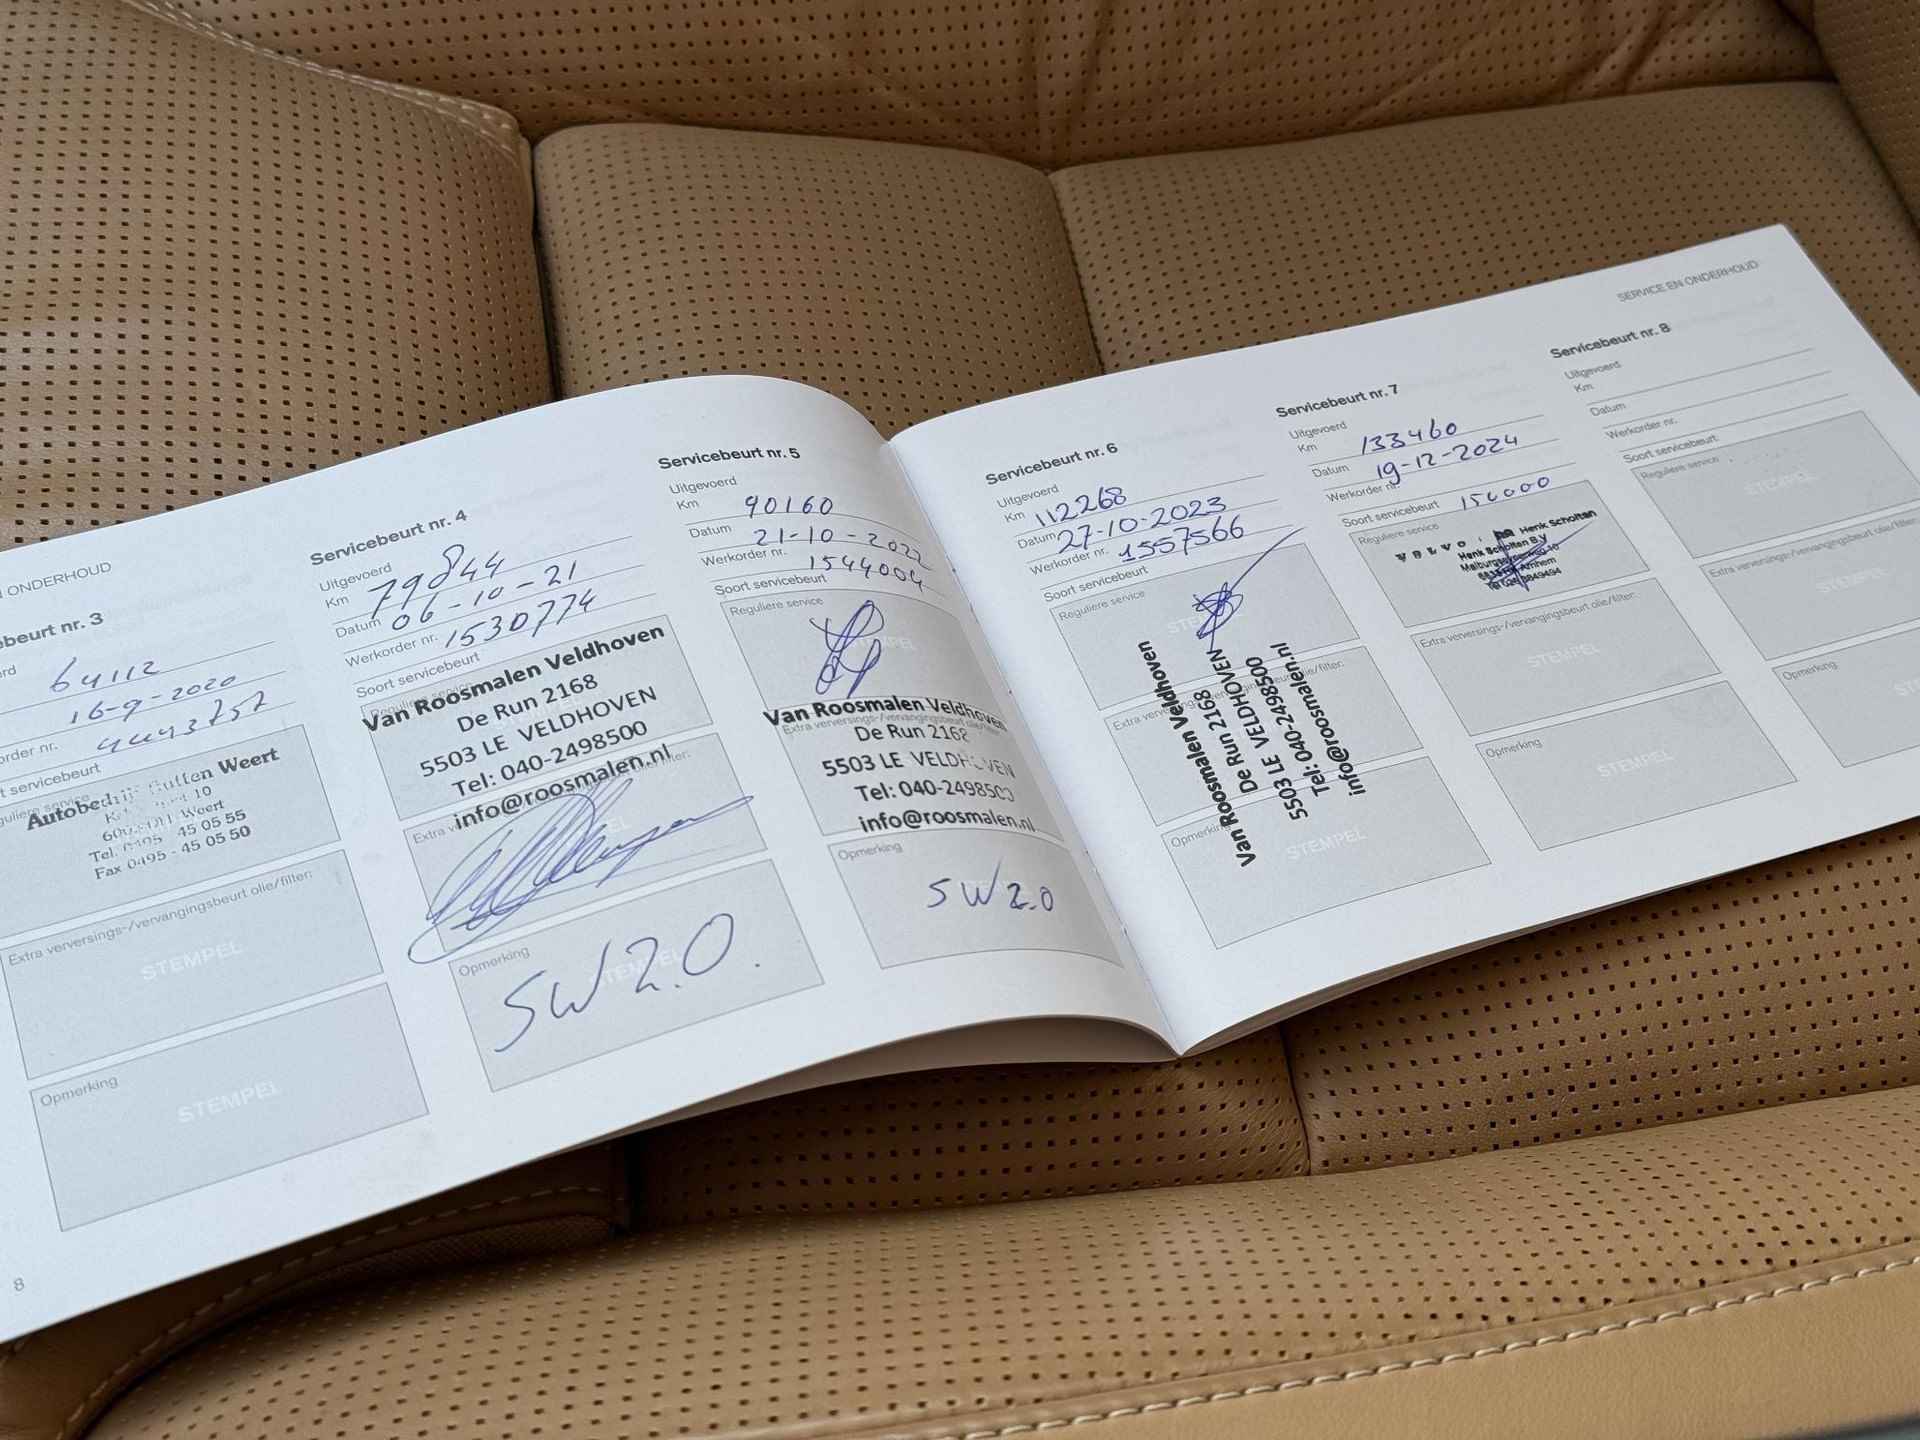 ONDERHOUD
beurt nr. 3
erd
64112
16-9-2020
order nr.
servicebeurt
guliere service
Autobedrijf Gulfen Weert
10
Weert
Tel. 0495 - 45 05 55
Fax 0495 - 45 05 50
Extra verversings-/vervangingsbeurt olie/filter:
STEMPEL
Opmerking
STEMPEL
8
Servicebeurt nr. 4
Uitgevoerd
Km 79844
Datum 06-10-21
Werkorder nr. 1530774
Soort servicebeurt
Reguliere service
Van Roosmalen Veldhoven
De Run 2168
5503 LE VELDHOVEN
Tel: 040-2498500
info@roosmalen.nl
Extra filter:
Opmerking
STEMPEL
SW 2.0.
Servicebeurt nr. 5
Uitgevoerd
Km 90160
Datum 21-10-2022
Werkorder nr. 1544004
Soort servicebeurt
Reguliere service
STEMPEL
Van Roosmalen Veldhoven
Extra verversings-/vervangingsbeurt olie/filter:
De Run 2168
5503 LE VELDHOVEN
Tel: 040-2498500
info@roosmalen.nl
Opmerking
SW 2.0
SERVICE EN ONDERHOUD
Servicebeurt nr. 6
Uitgevoerd
Km 112268
Datum 27-10-2023
Werkorder nr. 1557566
Soort servicebeurt
Reguliere service
Van Roosmalen Veldhoven
De Run 2168
5503 LE VELDHOVEN
Tel: 040-2498500
info@roosmalen.nl
Opmerking
STEMPEL
Servicebeurt nr. 7
Uitgevoerd
Km 133460
Datum 19-12-2024
Werkorder nr.
Soort servicebeurt 150000
Reguliere service
VOLVO Henk Scholten
Henk Scholten B.V.
Arnhem
Extra verversings-/vervangingsbeurt olie/filter:
STEMPEL
Opmerking
STEMPEL
Servicebeurt nr. 8
Uitgevoerd
Km
Datum
Werkorder nr.
Soort servicebeurt
Reguliere service
STEMPEL
Extra verversings-/vervangingsbeurt olie/filter:
STEMPEL
Opmerking